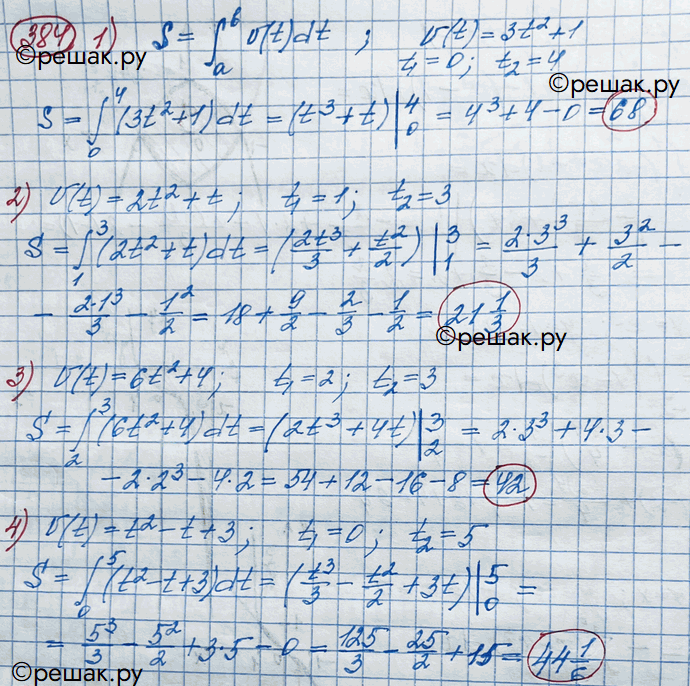 384 1) S = ∫ₐᵇ v(t)dt ; v(t) = 3t² + 1
©решак.ру t₁ = 0; t₂ = 4
©решак.ру
S = ∫₀⁴ (3t² + 1)dt = (t³ + t) |₀⁴ = 4³ + 4 − 0 = 68
2) v(t) = 2t² + t; t₁ = 1; t₂ = 3
S = ∫₁³ (2t² + t)dt = (2t³/3 + t²/2) |₁³ = 2·3³/3 + 3²/2 −
− 2·1³/3 − 1²/2 = 18 + 9/2 − 2/3 − 1/2 = 21 1/3
©решак.ру
3) v(t) = 6t² + 4; t₁ = 2; t₂ = 3
S = ∫₂³ (6t² + 4)dt = (2t³ + 4t) |₂³ = 2·3³ + 4·3 −
− 2·2³ − 4·2 = 54 + 12 − 16 − 8 = 42
4) v(t) = t² − t + 3; t₁ = 0; t₂ = 5
S = ∫₀⁵ (t² − t + 3)dt = (t³/3 − t²/2 + 3t) |₀⁵ =
= 5³/3 − 5²/2 + 3·5 − 0 = 125/3 − 25/2 + 15 = 44 1/6
©решак.ру